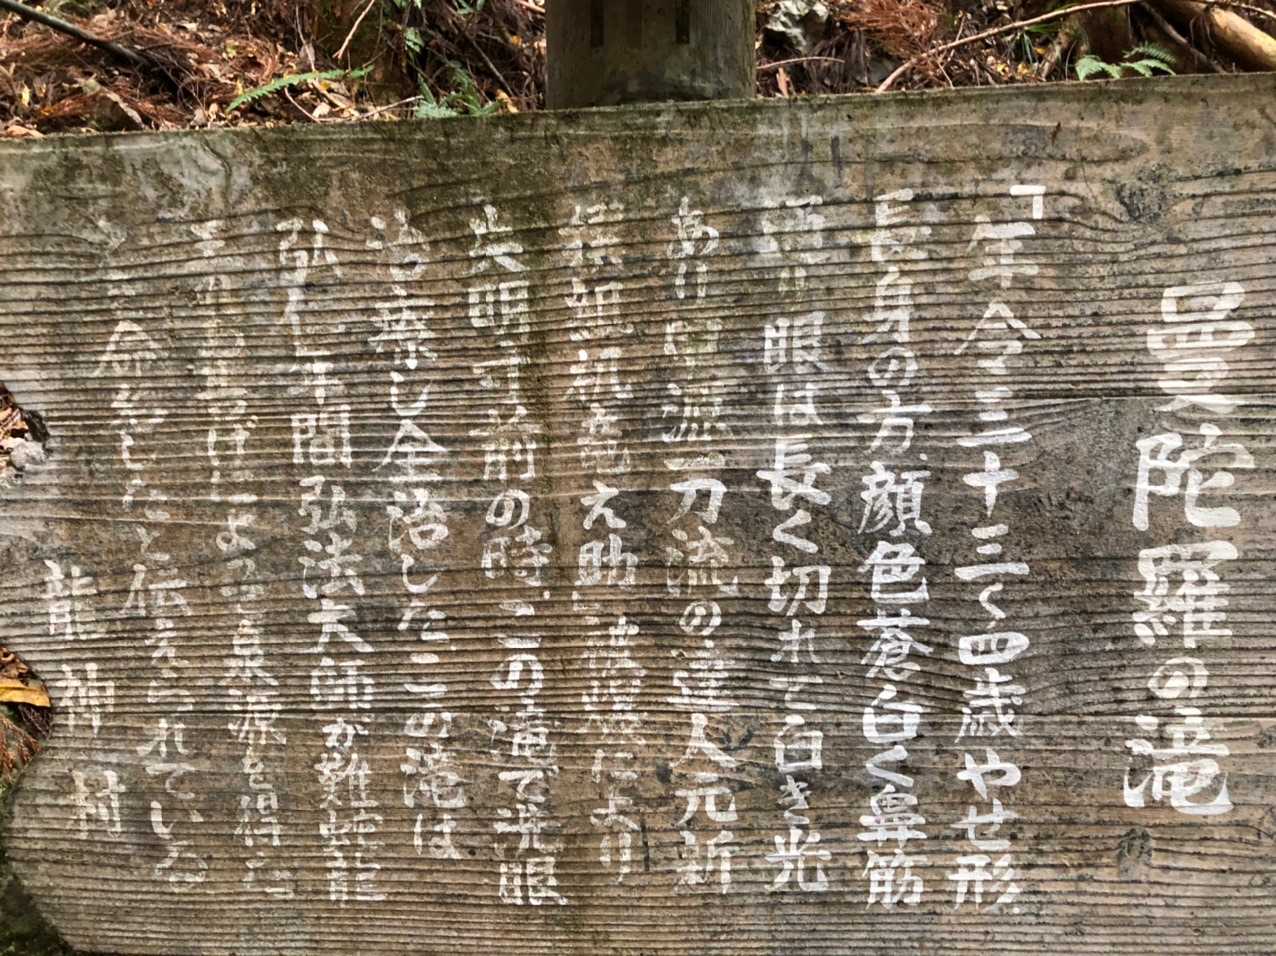 曼陀羅の滝
「年令三十三く四歳やせ形
長身の方顔色蒼白く鼻筋
通り眼は長く切れて白き光
あり 流刀流の達人元新
撰組机竜之助 により
失明寸前の時この滝で洗眼
治療し全治したこの滝は
弘仁年間弘法大師が難陀龍
王 げ 泉源を得て
命名したと伝えられている
龍神村